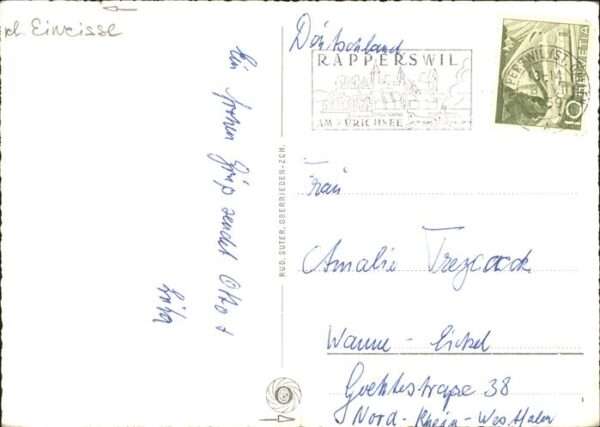 kl. Einrisse
Ein frohen Gruß sendet Otto +
Erika
RUD. SUTER, OBERRIEDEN-ZCH.
Deutschland
RAPPERSWIL
AM ZÜRICHSEE
Frau
Amalie
Wanne - Eickel
Goethestraße 38
Nord - Rhein - Westfalen
10